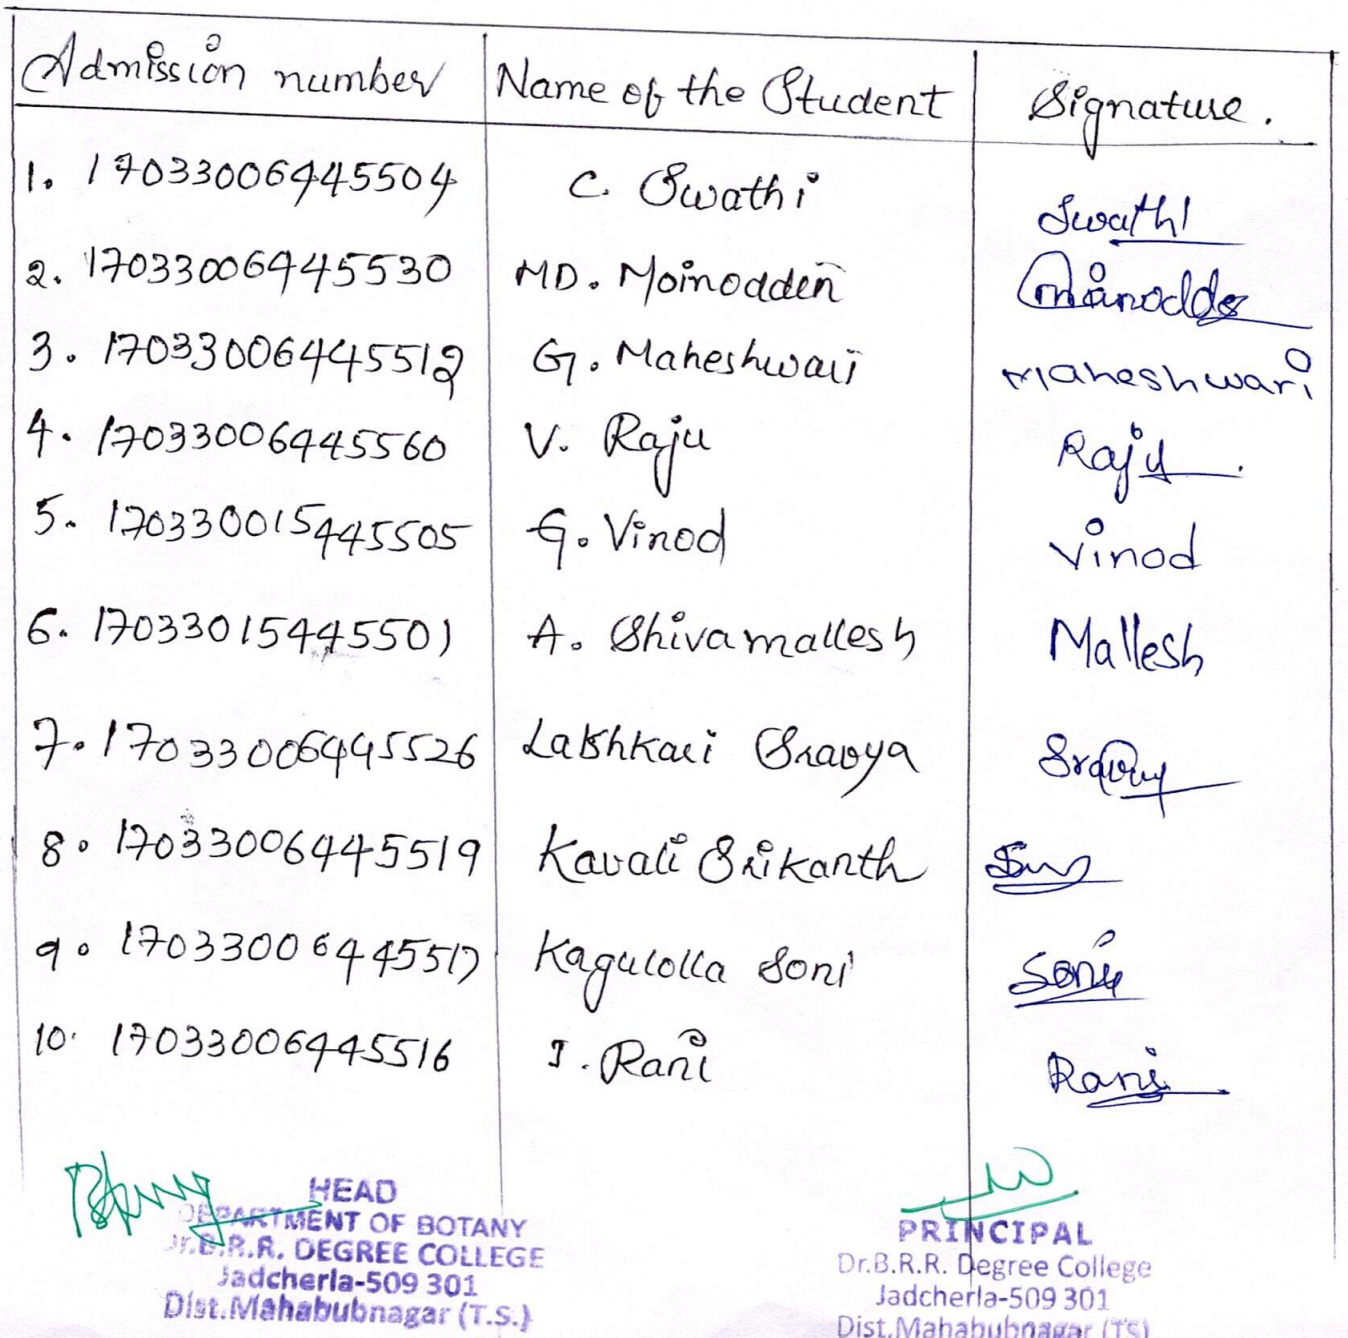 Admission number Name of the Student Signature.
1. 17033006445504 C. Swathi Swathi
2. 17033006445530 MD. Moinodden
3. 17033006445512 G. Maheshwari Maheshwari
4. 17033006445560 V. Raju Raju.
5. 170330015445505 G. Vinod Vinod
6. 17033015445501 A. Shivamallesh Mallesh
7. 17033006445526 Lakshkari Sravya
8. 17033006445519 Kavali Srikanth
9. 17033006445517 Kagulolla Soni Soni
10. 17033006445516 J. Rani Rani
HEAD
DEPARTMENT OF BOTANY
Dr.B.R.R. DEGREE COLLEGE
Jadcherla-509 301
Dist.Mahabubnagar (T.S.)
PRINCIPAL
Dr.B.R.R. Degree College
Jadcherla-509 301
Dist.Mahabubnagar (TS)